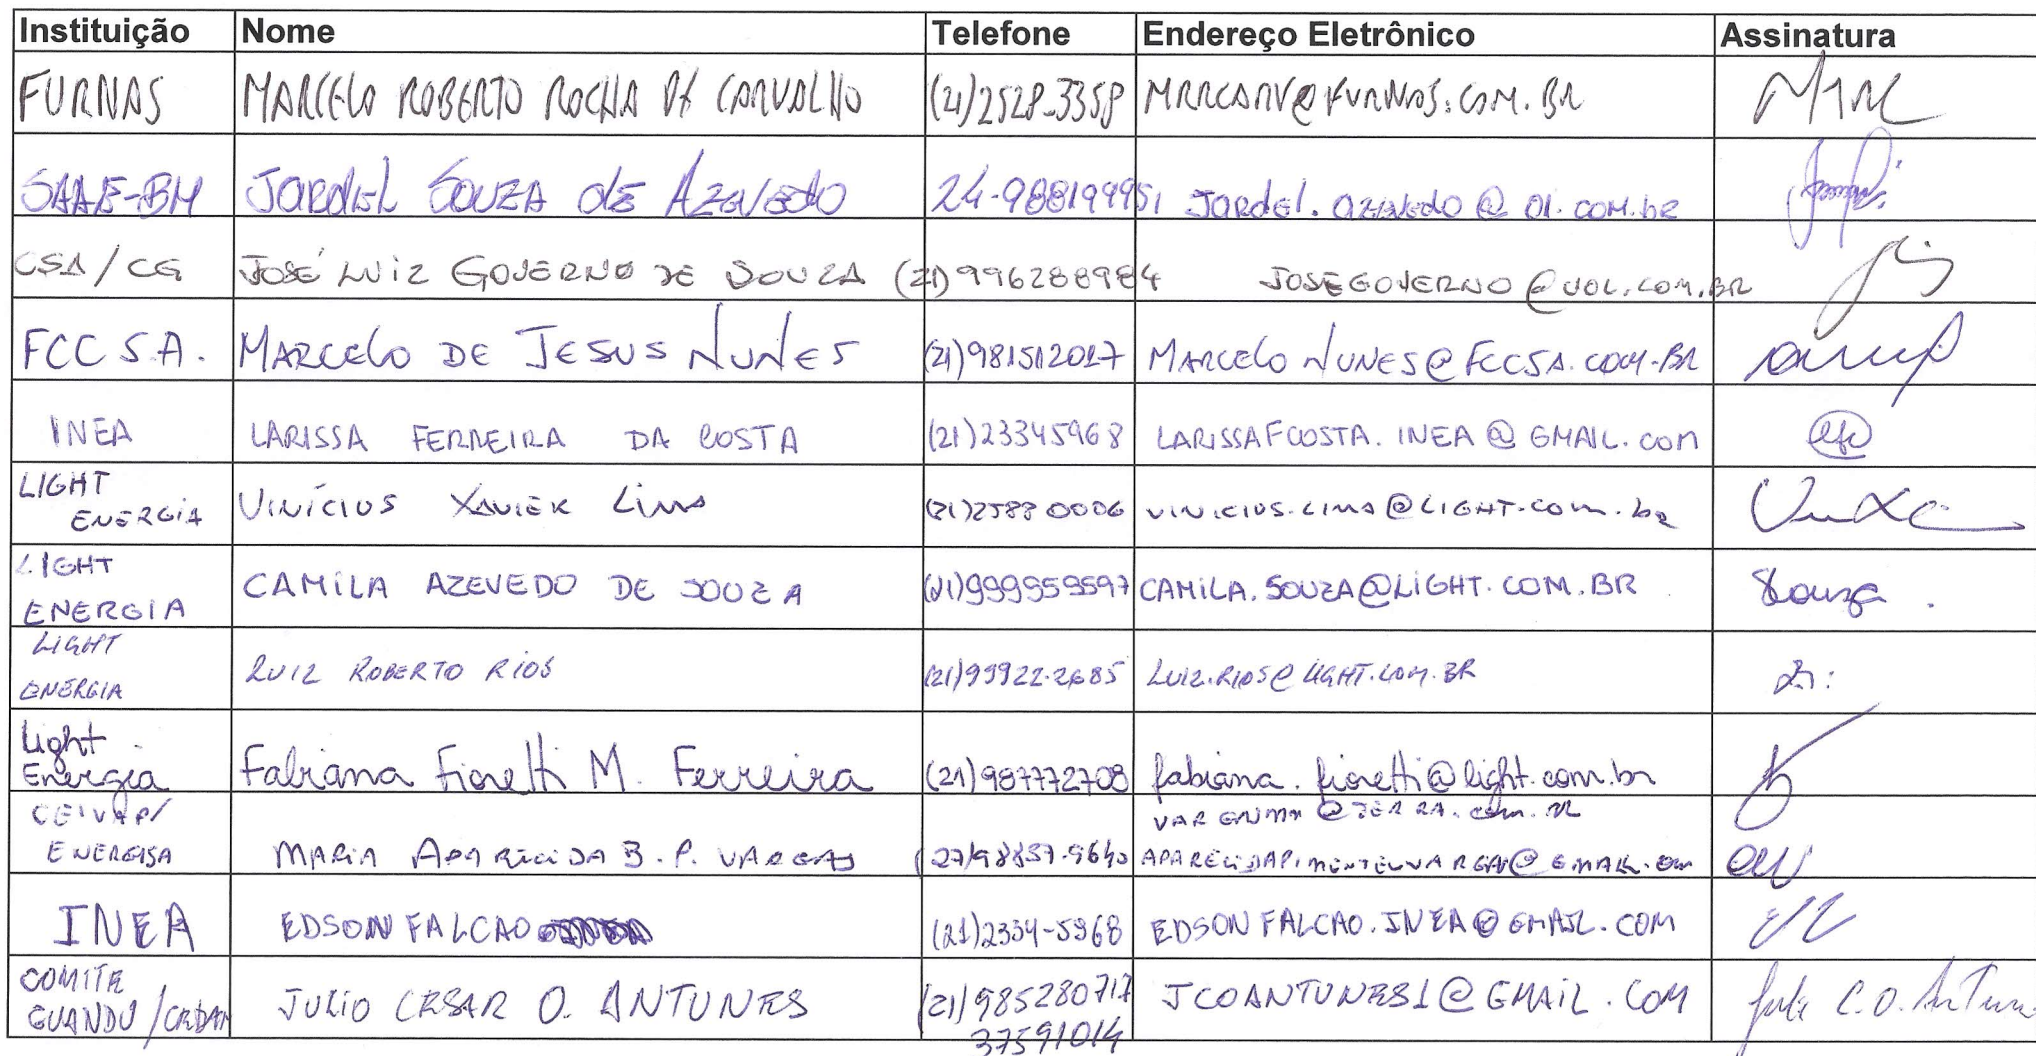 Instituição Nome Telefone Endereço Eletrônico Assinatura
FURNAS MARCELO ROBERTO ROCHA DE CARVALHO (21)2528-3358 MRRCARV@FURNAS.COM.BR
SAAE-BM JARDEL SOUZA de AZEVEDO 24-988199951 Jardel.azevedo@oi.com.br
CSA/CG JOSÉ LUIZ GOVERNO DE SOUZA (21) 996288984 JOSEGOVERNO@UOL.COM.BR
FCC S.A. MARCELO DE JESUS NUNES (21)981512017 MARCELO NUNES@FCCSA.COM-BR
INEA LARISSA FERREIRA DA COSTA (21)23345968 LARISSAFCOSTA.INEA@GMAIL.COM
LIGHT
ENERGIA VINÍCIUS XAVIER LIMA (21)2588 0006 VINICIUS.LIMA@LIGHT.COM.br
LIGHT
ENERGIA CAMILA AZEVEDO DE SOUZA (21)999959597 CAMILA.SOUZA@LIGHT.COM.BR Souza.
LIGHT
ENERGIA LUIZ ROBERTO RIOS (21)99922-2685 LUIZ.RIOS@LIGHT.COM.BR
Light
Energia Fabiana Fioretti M. Ferreira (21)987772708 fabiana.fioretti@light.com.br
CEIVAP/ @TERRA.com.br
ENERGISA MARIA APARECIDA B. P. VARGAS APARECIDAPIMENTELVARGAS@GMAIL.com
INEA EDSON FALCAO (21)2334-5968 EDSONFALCAO.INEA@GMAIL.COM
COMITE
GUANDU/CEDAE JULIO CESAR O. ANTUNES (21)985280717 JCOANTUNES1@GMAIL.COM Julio C.O. Antunes
37591014